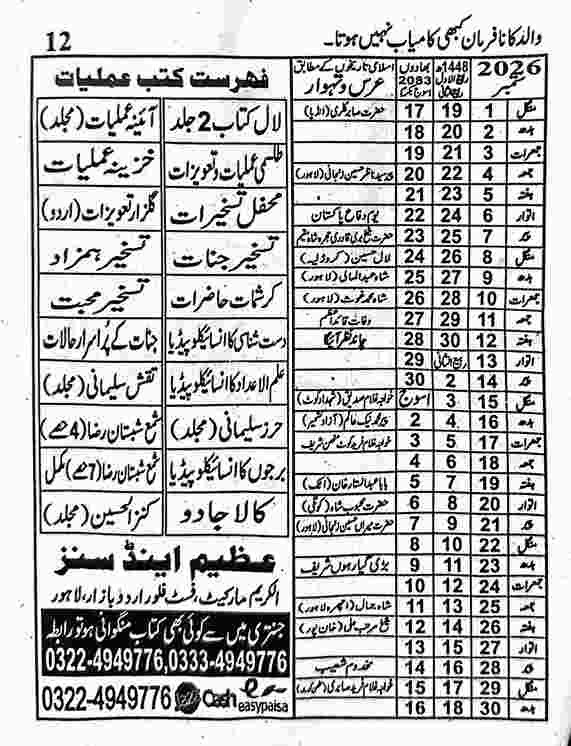 والد کا نافرمان کبھی کامیاب نہیں ہوتا۔
12
2026 ستمبر
1448ھ ربیع الاول ربیع الثانی
بھادوں 2083 اسوج
اسلامی تاریخوں کے مطابق عرس و تہوار
منگل 1 19 17 حضرت صابر کلیری (انڈیا)
بدھ 2 20 18
جمعرات 3 21 19
جمعہ 4 22 20 پیر سید ناظر حسین زنجانی (لاہور)
ہفتہ 5 23 21
اتوار 6 24 22 یوم دفاع پاکستان
پیر 7 25 23
منگل 8 26 24 لال حسین (کروڑ لیہ)
بدھ 9 27 25 شاہ عبدالمعالی (لاہور)
جمعرات 10 28 26 شاہ محمد غوث (لاہور)
جمعہ 11 29 27 وفات قائد اعظم
ہفتہ 12 30 28 چاند نظر آئیگا
اتوار 13 ربیع الثانی 29
پیر 14 2 30
منگل 15 3 اسوج خواجہ غلام صدیق (شہداد کوٹ)
بدھ 16 4 2 پیر محمد نیک عالم (آزاد کشمیر)
جمعرات 17 5 3 خواجہ غلام فرید کوٹ مٹھن شریف
جمعہ 18 6 4
ہفتہ 19 7 5 بابا عبدالستار خان (اٹک)
اتوار 20 8 6 حضرت محبوب شاہ (کوٹلی)
پیر 21 9 7 حضرت میراں حسین زنجانی (لاہور)
منگل 22 10 8
بدھ 23 11 9 بڑی گیارہوں شریف
جمعرات 24 12 10
جمعہ 25 13 11 شاہ جمال (اچھرہ لاہور)
ہفتہ 26 14 12
اتوار 27 15 13
پیر 28 16 14 مخدوم شعیب
منگل 29 17 15
بدھ 30 18 16
فہرست کتب عملیات
لال کتاب 2 جلد آئینہ عملیات (مجلد)
طلسمی عملیات و تعویزات خزینہ عملیات
محفل تسخیرات گلزار تعویزات (اردو)
تسخیر جنات تسخیر ہمزاد
کرشمات حاضرات تسخیر محبت
دست شناسی کا انسائیکلوپیڈیا جنات کے پراسرار حالات
علم الاعداد کا انسائیکلوپیڈیا نقش سلیمانی (مجلد)
حرز سلیمانی (مجلد) شمع شبستان رضا (4 حصے)
برجوں کا انسائیکلوپیڈیا شمع شبستان رضا (7 حصے) مکمل
کالا جادو کنز الحسین (مجلد)
عظیم اینڈ سنز
الکریم مارکیٹ، فسٹ فلور اردو بازار، لاہور
جنتری میں سے کوئی بھی کتاب منگوانی ہو تو رابطہ
0322-4949776,0333-4949776
0322-4949776 Cash easypaisa